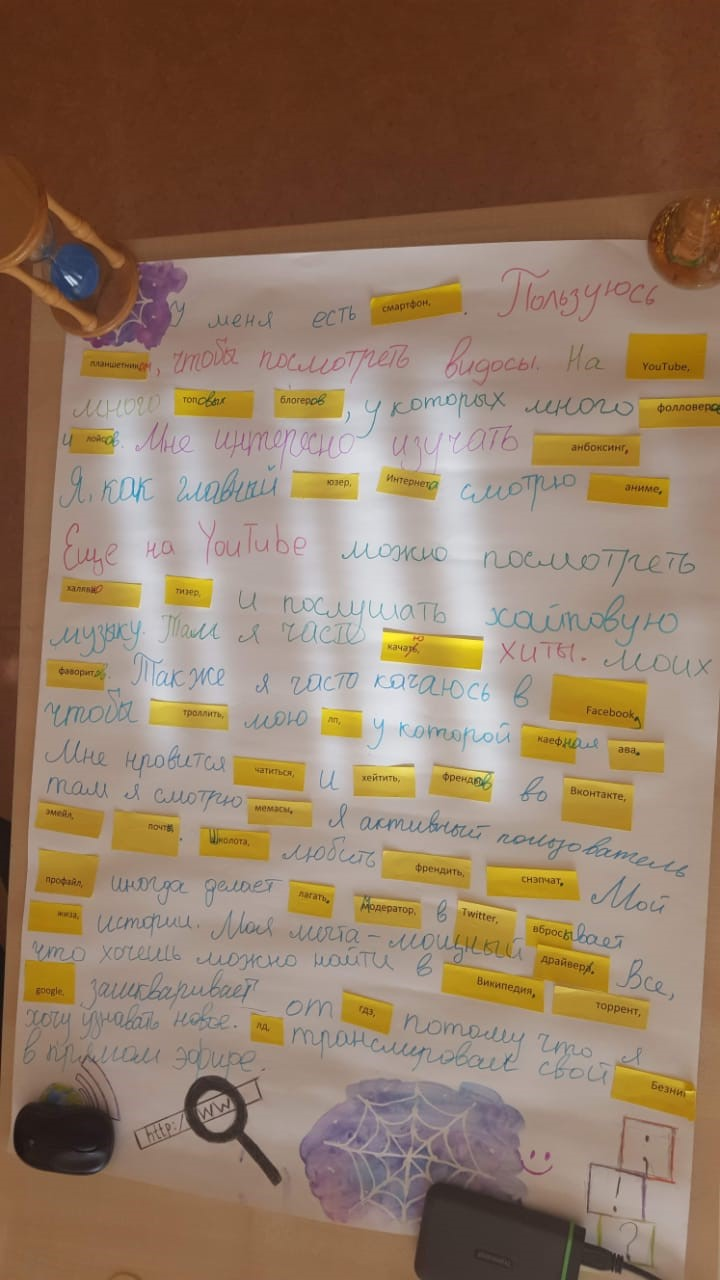 У меня есть смартфон, . Пользуюсь
планшетником, чтобы посмотреть видосы. На YouTube,
много топовых блогеров, у которых много фолловеров
и лойсов. Мне интересно изучать анбоксинг,
Я, как главный юзер, Интернета смотрю аниме,
Еще на YouTube можно посмотреть
халявно тизер, и послушать хайповую
музыку. Там я часто качаю, хиты. моих
фаворитов. Также я часто качаюсь в Facebook,
чтобы троллить, мою лп, у которой каефная ава.
Мне нровится чатиться, и хейтить, френдов во Вконтакте,
там я смотрю мемасы, Я активный пользователь
эмейл, почты. Школота, любить френдить, снэпчат, Мой
профайл, иногда делает лагать. Модератор, в Twitter, вбросывает
жиза, истории. Моя мычта – мощный драйвер, Все,
что хочешь можно найти в Википедия, торрент,
google, зашкваривает от гдз, потому что я
хочу узнавать новое. лд, транслировает свой Безни
в прямом эфире.
http:/ WW
! ?